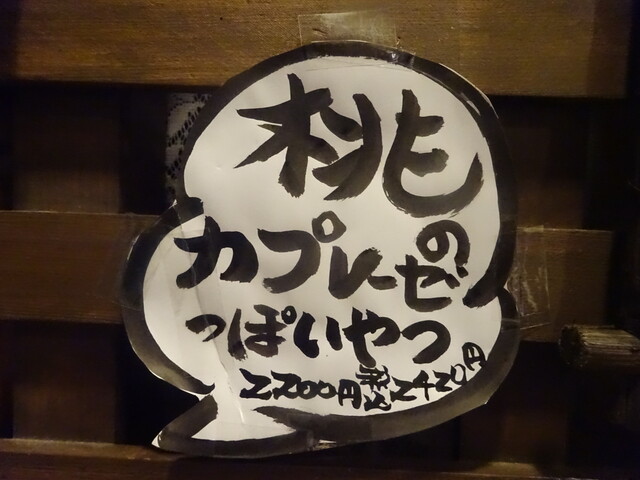 桃の
カプレーゼ
っぽいやつ
2200円税込2420円